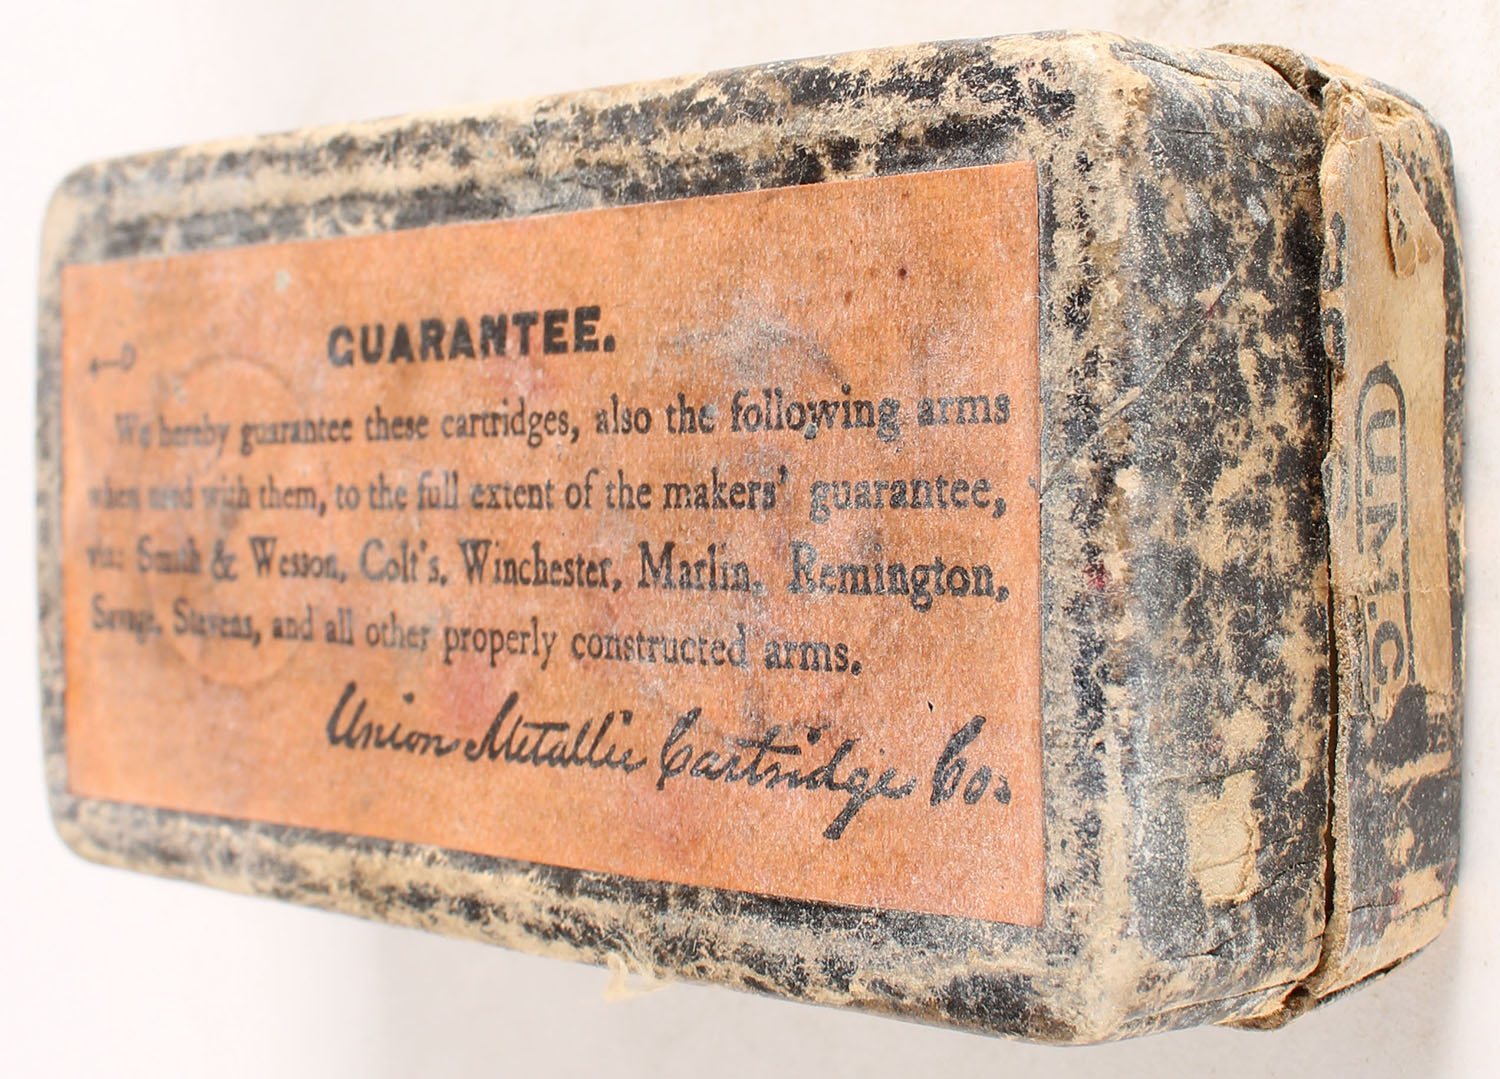 GUARANTEE.
We hereby guarantee these cartridges, also the following arms
when used with them, to the full extent of the makers' guarantee,
viz: Smith & Wesson, Colt's, Winchester, Marlin, Remington,
Savage, Stevens, and all other properly constructed arms.
Union Metallic Cartridge Co.
U.M.C.